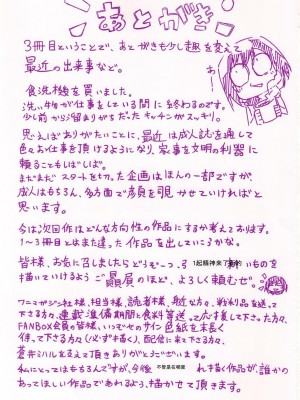 あとがき
3冊目ということで、あとがきも少し趣を変えて
最近の出来事など。
食洗機を買いました。
洗い物が仕事をしている間に終わるのです。
少し前から留まりがちだったキッチンがスッキリ。
思えばありがたいことに、最近は成人誌を通して
色々お仕事を頂けるようになり、家事を文明の利器に
頼ることもしばしば。
まだまだスタートを切った企画はほんの一部ですが、
成人はもちろん、多方面で顔を覗かせていければと
思います。
今は次回作はどんな方向性の作品にするか考えております。
1〜3冊目とはまた違った作品を出していこうかな。
皆様、お気に召しましたらどうぞ一つ
1起精神来了
いものを
描いていけるようご贔屓のほど、よろしく頼むぜ。
ワニマガジン社様、担当様、読者様、
下さる方々、連載準備期間に食料等送って応援して下さった方々、
FANBOX会員の皆様、いつぞやのサイン色紙を末長く
待って下さる方々(必ず描く)、配信に来て下さる方、
蒼井ミハルを支えて頂きありがとうございます。
私にとってはもちろんですが、今後
不管是在哪里
れ描く作品が、誰かの
あってほしい作品であれるよう、描かせて頂きます。